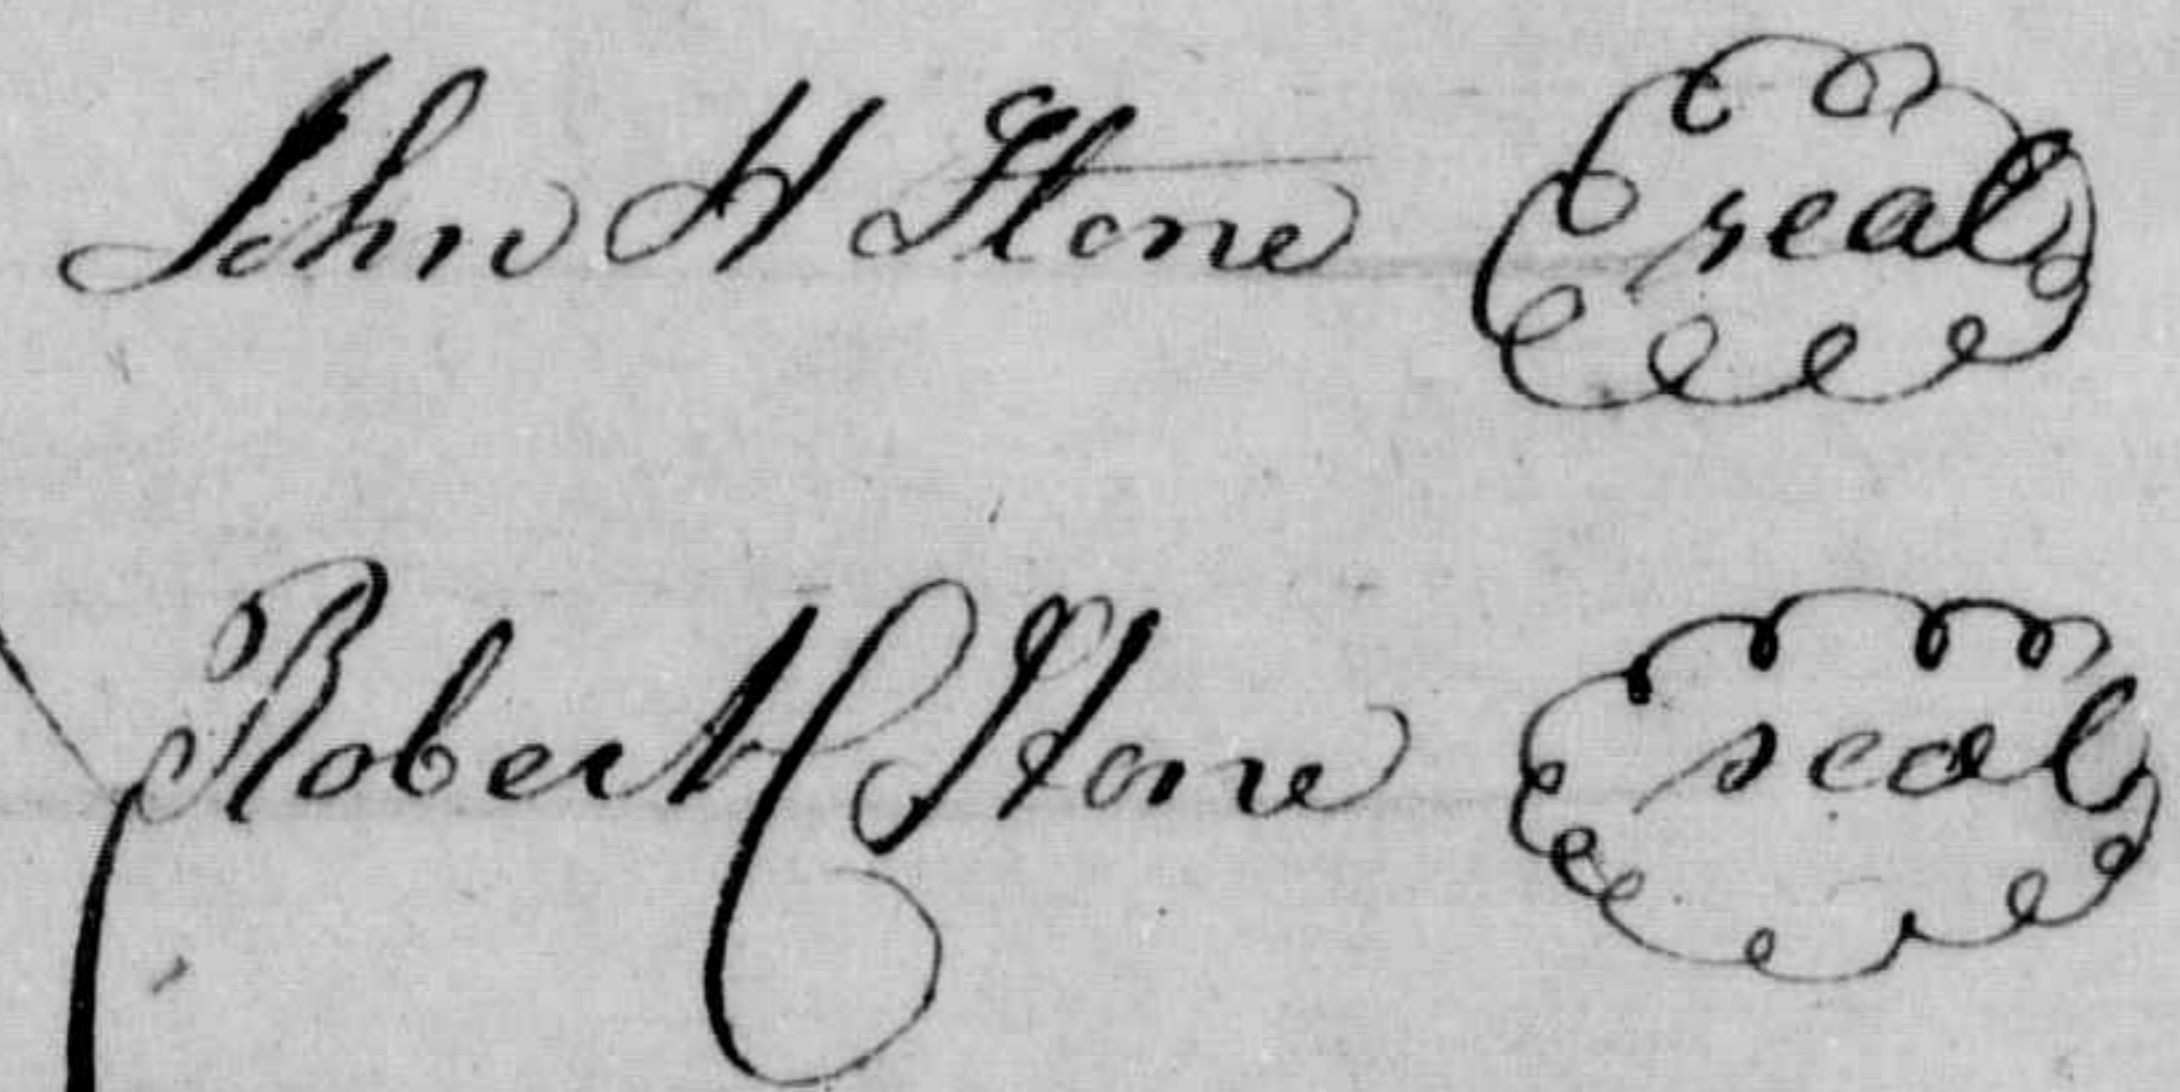 John H Stone seal
Robert C Stone seal